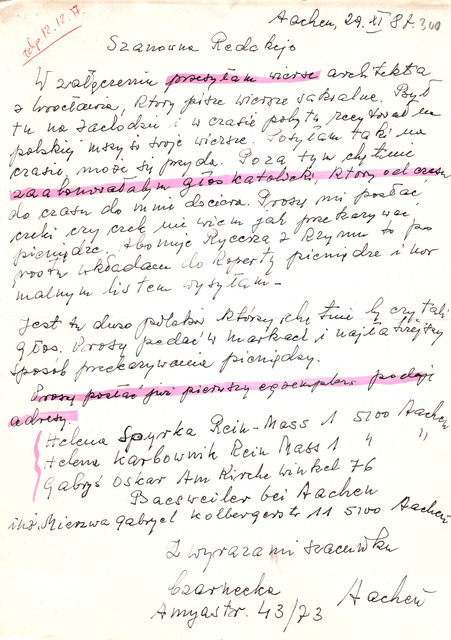 Aachen, 29. XI 87. 300
odp 12.12.17.
Szanowna Redakcjo
W załączeniu przesyłam wiersze architekta
z Wrocławia, który pisze wiersze sakralne. Był
tu na zachodzie i w czasie pobytu recytował na
polskiej mszy św swoje wiersze. Posyłam taki na
czasie, może się przyda. Poza tym chętnie
zaabonowałabym Głos Katolicki, który od czasu
do czasu do mnie dociera. Proszę mi posłać
czeki czy czek nie wiem jak przekazywać
pieniądze. Abonuję Rycerza z Rzymu to po
prostu wkładam do koperty pieniądze i nor
malnym listem wysyłam –
Jest tu dużo polaków którzy chętnie by czytali
Głos. Proszę podać w markach i najłatwiejszy
sposób przekazywania pieniędzy.
Proszę posłać już pierwszy egzemplarz podaję
adresy.
Helena Spyrka Rein-Mass 1 5100 Aachen
Helena Karbownik Rein Mass 1 " "
Gabryś Oskar Am Kirche winkel 76
Baesweiler bei Aachen
inż. Mierzwa Gabryel Kolbergerstr 11 5100 Aachen
Z wyrazami szacunku
Czarnecka Aachen
Amyastr. 43/73